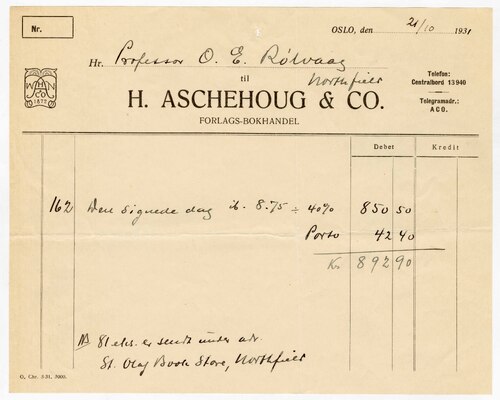 Nr.
OSLO, den 21/10 1931
Hr. Professor O. E. Rölvaag
til Northfield
Telefon:
Centralbord 13940
Telegramadr.:
ACO.
WHN
& CO
1872
H. ASCHEHOUG & CO.
FORLAGS-BOKHANDEL
Debet Kredit
162 Den signede dag ib. 8.75 ÷ 40% 850 50
Porto 42 40
Kr. 892 90
NB 81 eks. er sendt under adr.
St. Olaf Book Store, Northfield
O. Chr. 5-31. 3000.